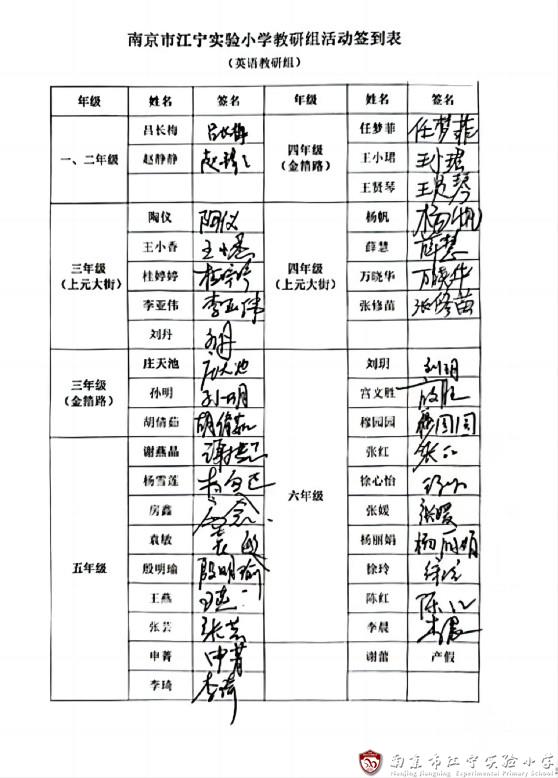 南京市江宁实验小学教研组活动签到表
（英语教研组）
年级 姓名 签名 年级 姓名 签名
一、二年级
吕长梅 吕长梅
赵静静
四年级
（金箔路）
任梦菲 任梦菲
王小珺 王小珺
王贤琴 王贤琴
三年级
（上元大街）
陶仪 陶仪
王小香
桂婷婷 桂婷婷
李亚伟 李亚伟
刘丹
四年级
（上元大街）
杨帆 杨帆
薛慧 薛慧
万晓华 万晓华
张修苗 张修苗
三年级
（金箔路）
庄天池 庄天池
孙明 孙明
胡倩茹 胡倩茹
五年级
谢燕晶
杨雪莲
房鑫
袁敏 袁敏
殷明瑜 殷明瑜
王燕 王燕
张芸 张芸
申菁 申菁
李琦 李琦
六年级
刘玥 刘玥
宫文胜
穆园园 穆园园
张红 张红
徐心怡
张媛 张媛
杨丽娟 杨丽娟
徐玲 徐玲
陈红 陈红
李晨 李晨
谢蕾 产假
南京市江宁实验小学
Nanjing Jiangning Experimental Primary School